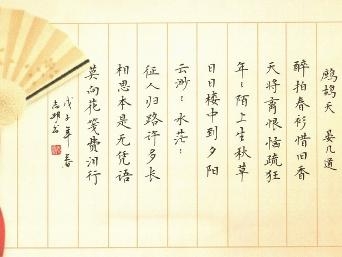 鹧鸪天 晏几道
醉拍春衫惜旧香
天将离恨恼疏狂
年：陌上生秋草
日日楼中到夕阳
云渺：水茫：
征人归路许多长
相思本是无凭语
莫向花笺费泪行
戊子年春